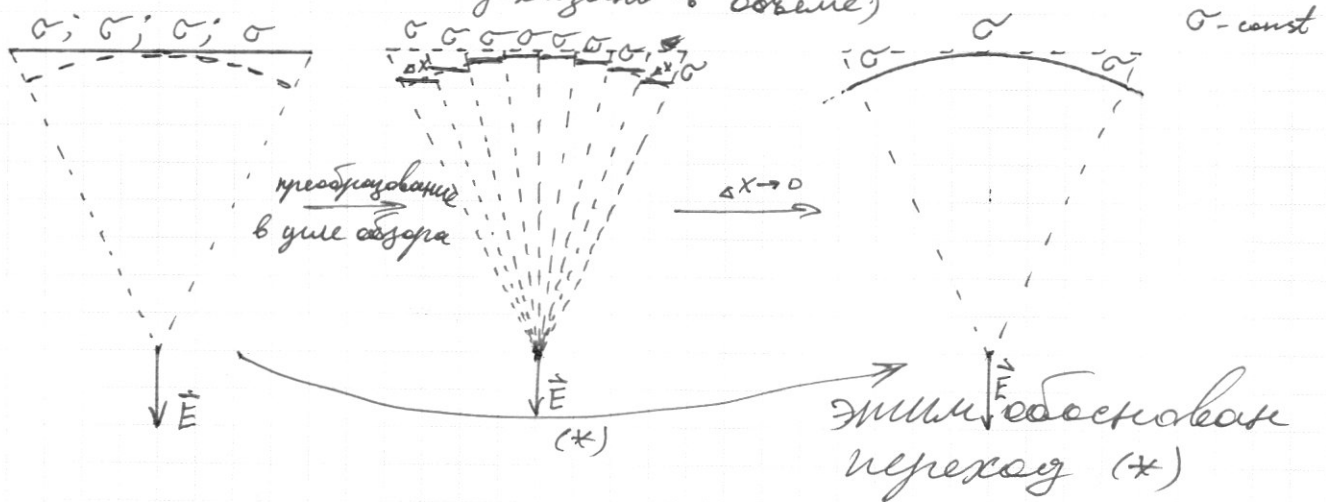 в объеме)
σ; σ; σ; σ
σ σ σ σ σ σ σ σ
σ
σ σ
σ - const
Δx Δx
преобразование
в угле обзора
Δx→0
E⃗
E⃗
(*)
E⃗
этим обоснован
переход (*)